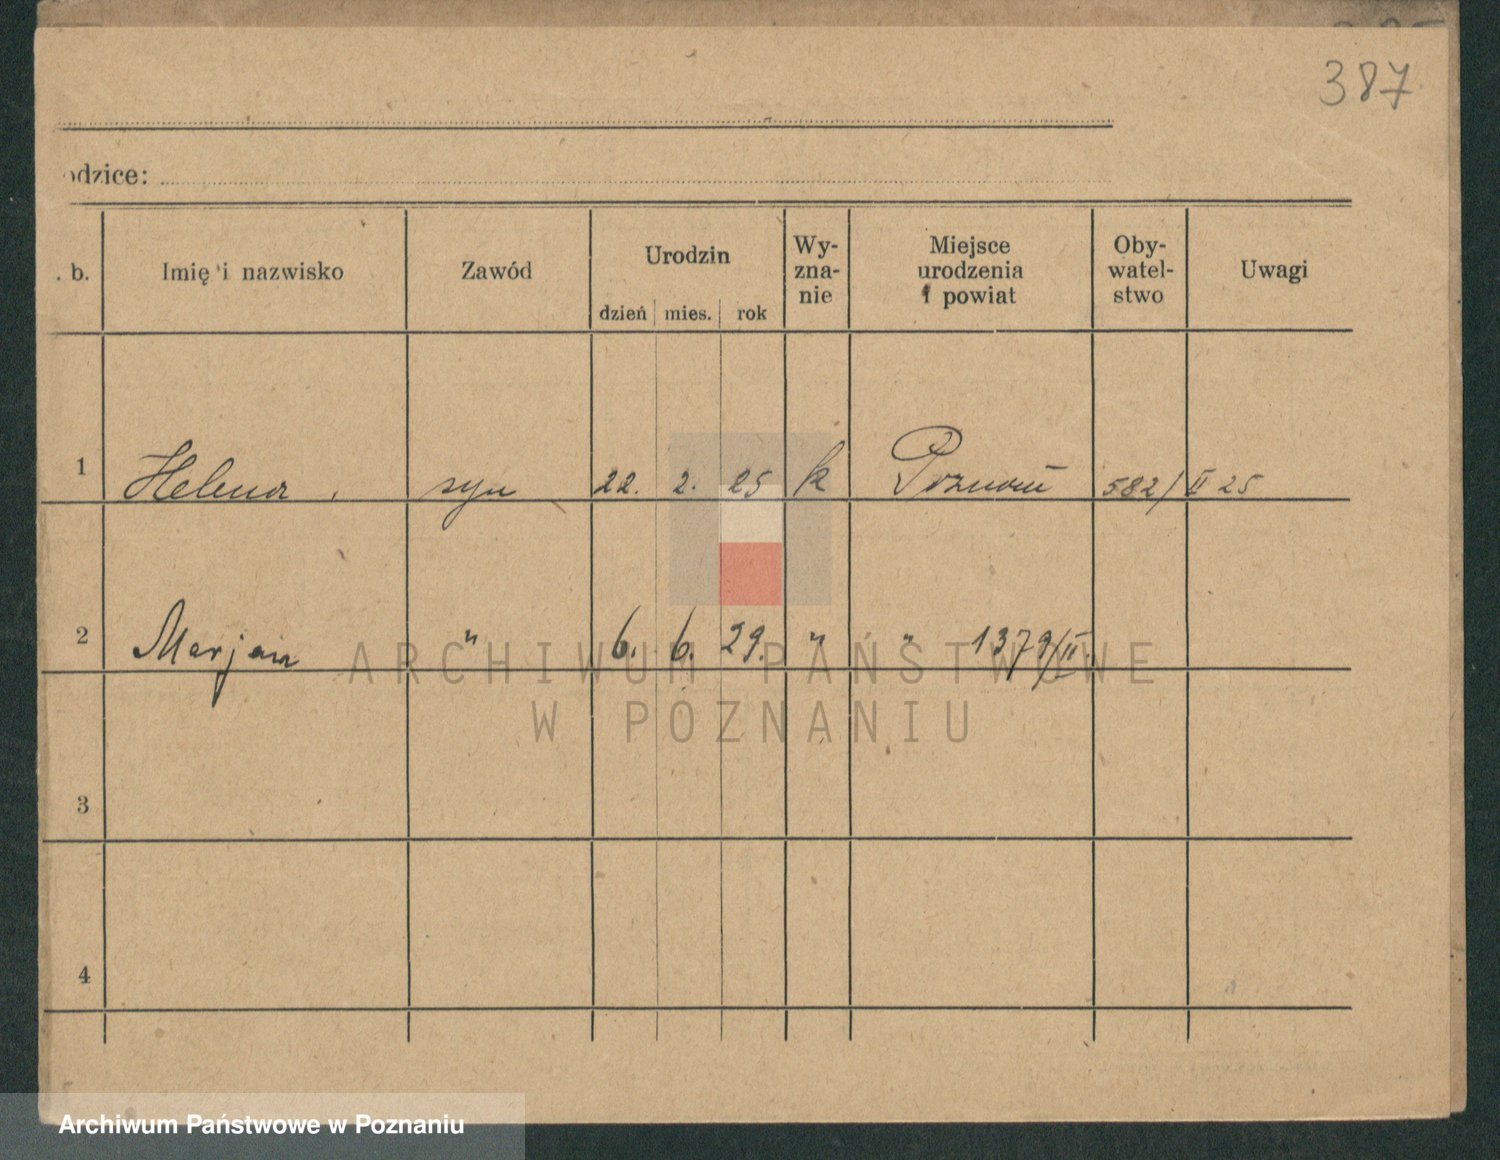 387
odzice:
. b. Imię i nazwisko Zawód Urodzin Wy- Miejsce Oby- Uwagi
zna- urodzenia watel-
nie i powiat stwo
dzień mies. rok
1 Helena syn 22. 2. 25 k Poznań 582/II 25
2 Marjan " 6. 6. 29. " " 1379/II.
3
4
ARCHIWUM PAŃSTWOWE
W POZNANIU
Archiwum Państwowe w Poznaniu